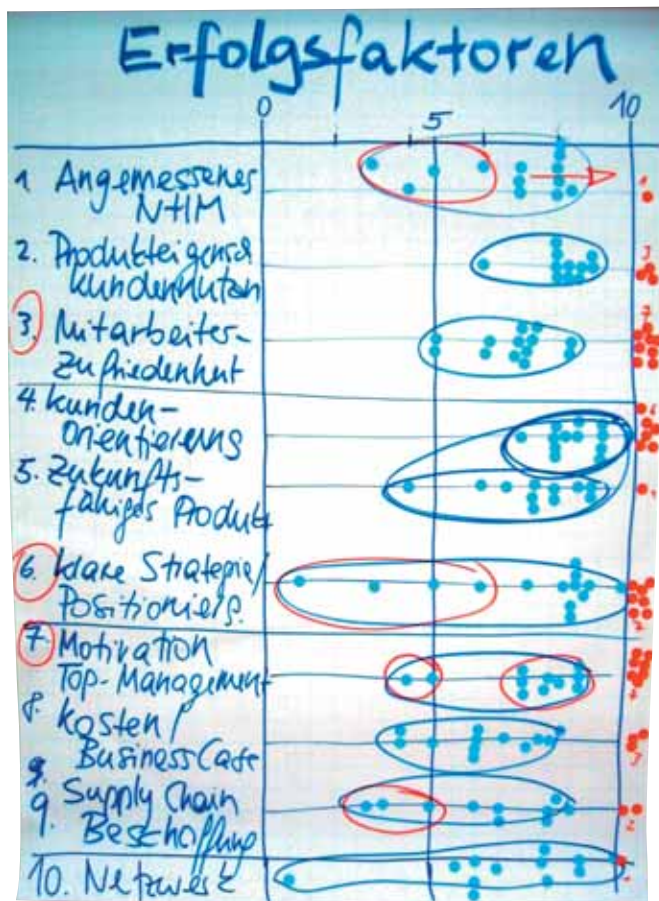 Erfolgsfaktoren
0 5 10
1 Angemessenes
NHM
1
2. Produkteigensch
Kundennutzen
3
3. Mitarbeiter-
Zufriedenheit
7
4. Kunden-
orientierung
6
5. Zukunfts-
fähiges Produkt
1
6. klare Strategie/
Positionierg.
7. Motivation
Top-Management
8. Kosten/
Business Case
3
9. Supply Chain
Beschaffung
2
10. Netzwerk